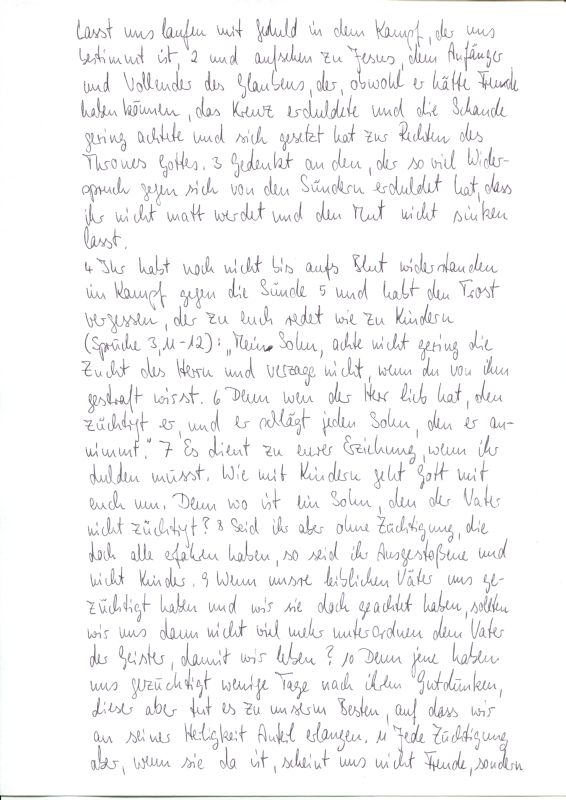 Lasst uns laufen mit Geduld in dem Kampf, der uns
bestimmt ist, 2 und aufsehen zu Jesus, dem Anfänger
und Vollender des Glaubens, der, obwohl er hätte Freude
haben können, das Kreuz erduldete und die Schande
gering achtete und sich gesetzt hat zur Rechten des
Thrones Gottes. 3 Gedenkt an den, der so viel Wider-
spruch gegen sich von den Sündern erduldet hat, dass
ihr nicht matt werdet und den Mut nicht sinken
lasst.
4 Ihr habt noch nicht bis aufs Blut widerstanden
im Kampf gegen die Sünde 5 und habt den Trost
vergessen, der zu euch redet wie zu Kindern
(Sprüche 3,11-12): „Mein Sohn, achte nicht gering die
Zucht des Herrn und verzage nicht, wenn du von ihm
gestraft wirst. 6 Denn wen der Herr lieb hat, den
züchtigt er, und er schlägt jeden Sohn, den er an-
nimmt." 7 Es dient zu eurer Erziehung, wenn ihr
dulden müsst. Wie mit Kindern geht Gott mit
euch um. Denn wo ist ein Sohn, den der Vater
nicht züchtigt? 8 Seid ihr aber ohne Züchtigung, die
doch alle erfahren haben, so seid ihr Ausgestoßene und
nicht Kinder. 9 Wenn unsre leiblichen Väter uns ge-
züchtigt haben und wir sie doch geachtet haben, sollten
wir uns dann nicht viel mehr unterordnen dem Vater
der Geister, damit wir leben? 10 Denn jene haben
uns gezüchtigt wenige Tage nach ihrem Gutdünken,
dieser aber tut es zu unserm Besten, auf dass wir
an seiner Heiligkeit Anteil erlangen. 11 Jede Züchtigung
aber, wenn sie da ist, scheint uns nicht Freude, sondern